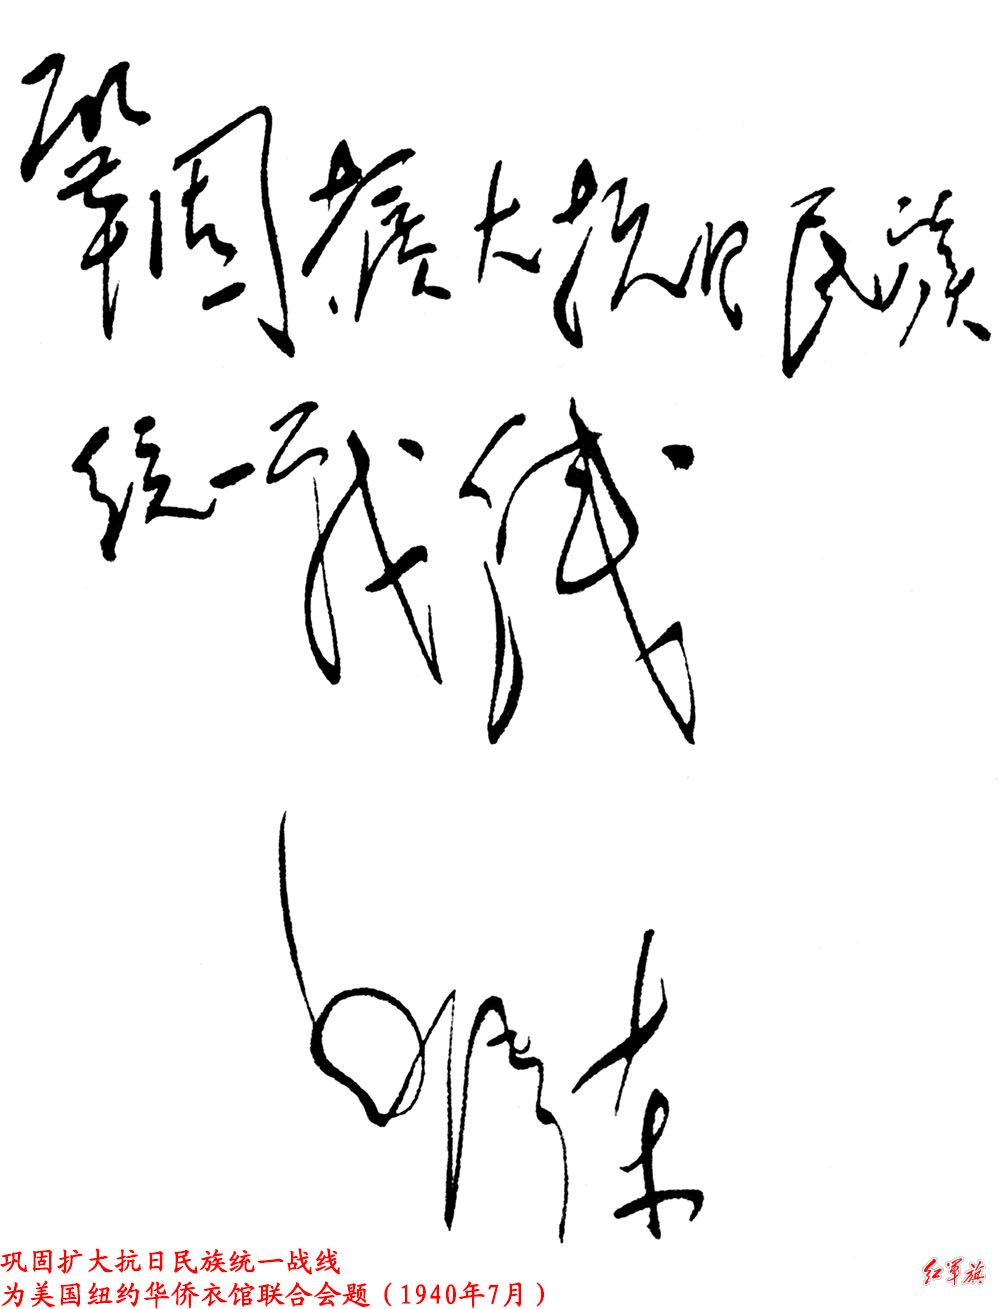 鞏固擴大抗日民族
統一战線
毛澤东
巩固扩大抗日民族统一战线
为美国纽约华侨衣馆联合会题（1940年7月）
红军旗